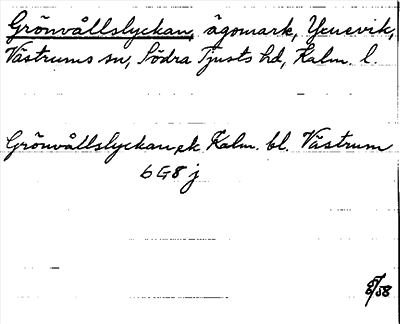 Grönvållslyckan, ägomark, Ycuevik,
Västrums sn, Södra Tjusts hd, Kalm. l.
Grönvållslyckan ek Kalm. bl. Västrum
6G8j
/58